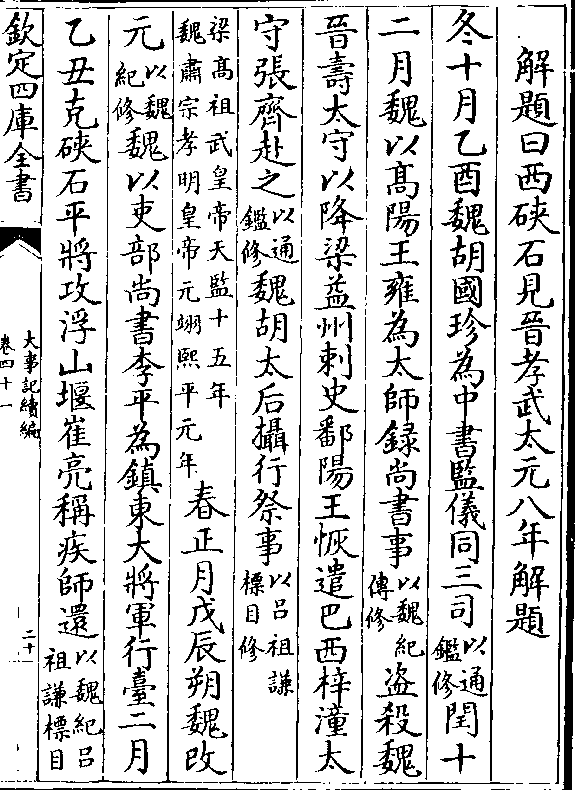 解題曰西硤石見晉孝武太元八年解題
冬十月乙酉魏胡國珍為中書監儀同三司以通鑑修閏十
二月魏以髙陽王雍為太師録尚書事以魏紀傳修盜殺魏
晉壽太守以降梁益州刺史鄱陽王恢遣巴西梓潼太
守張齊赴之以通鑑修魏胡太后攝行祭事以吕祖謙標目修
梁髙祖武皇帝天監十五年
魏肅宗孝明皇帝元翊熙平元年
春正月戊辰朔魏改
元以魏紀修魏以吏部尚書李平為鎮東大將軍行臺二月
乙丑克硤石平將攻浮山堰崔亮稱疾師還以魏紀吕祖謙標目
欽定四庫全書
大事記續編
卷四十一
二十